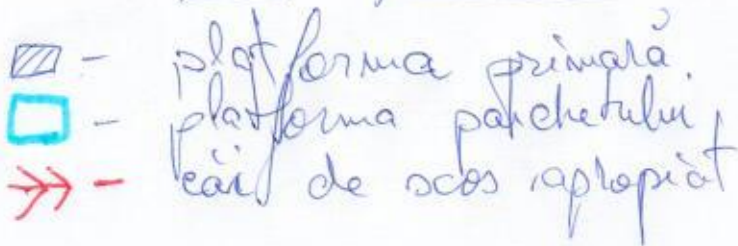 - platforma primară
- platforma parchetului
- căi de scos apropiat